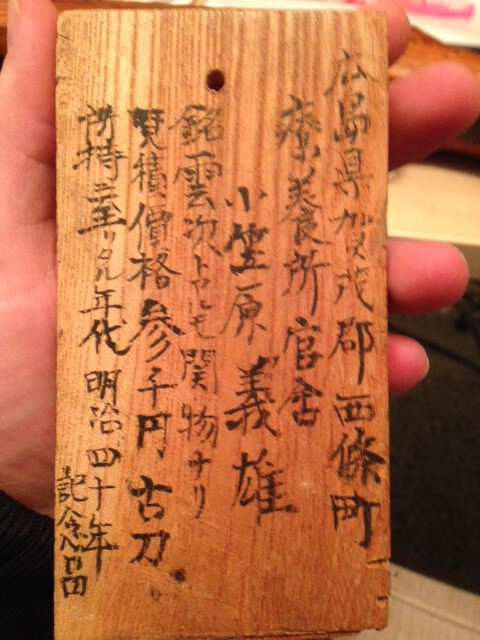 広島県賀茂郡西條町
療養所官舎
小笠原義雄
銘雲次トアルモ関物ナリ
見積價格参千円古刀
所持ニ至リタル年代明治四十年
記念品